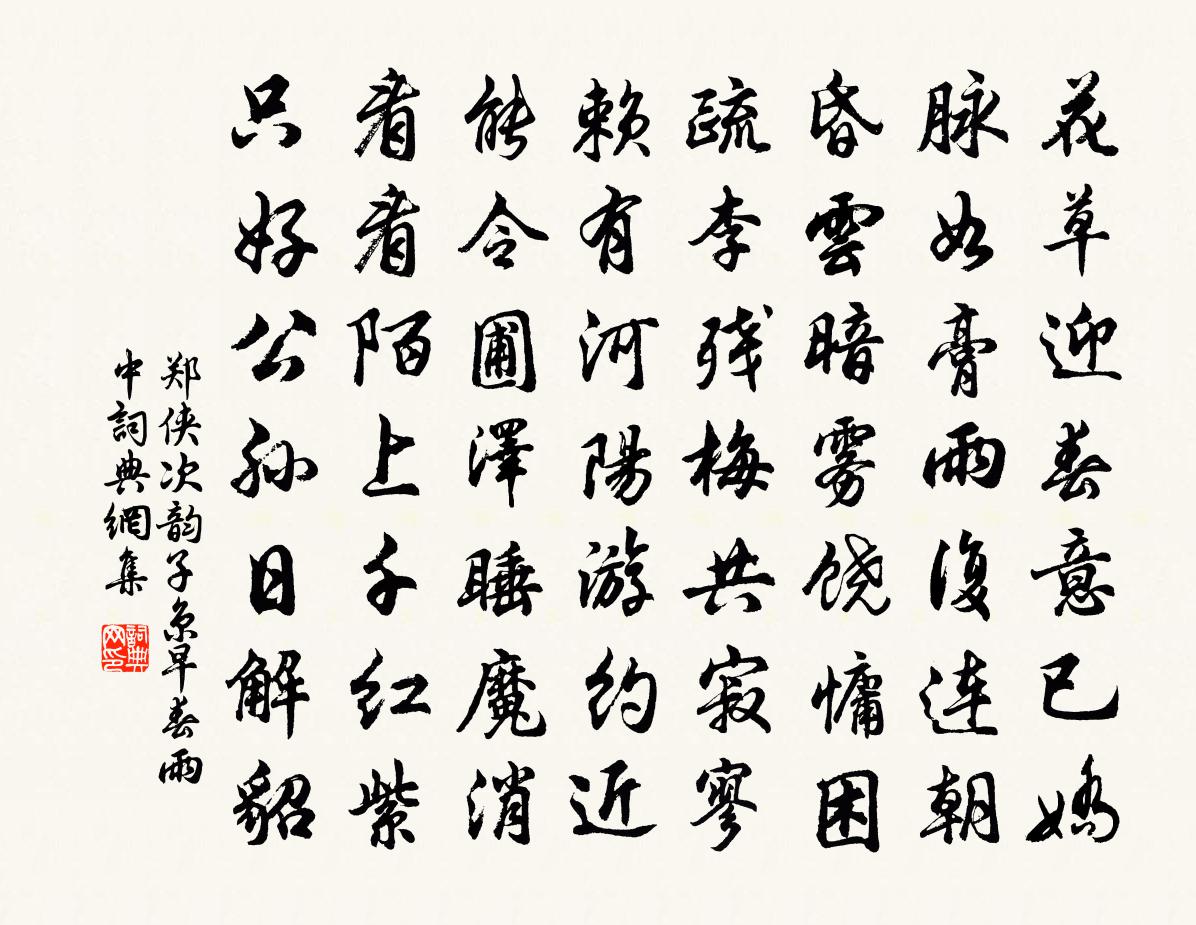 花草迎春意已嬌
脉如膏雨復连朝
昏雲暗雾饶慵困
疏李残梅共寂寥
赖有河陽游约近
能令圃澤睡魔消
看看陌上千红紫
只好公孙日解貂
郑侠次韵子京早春雨
中詞典網集
詞典
网印